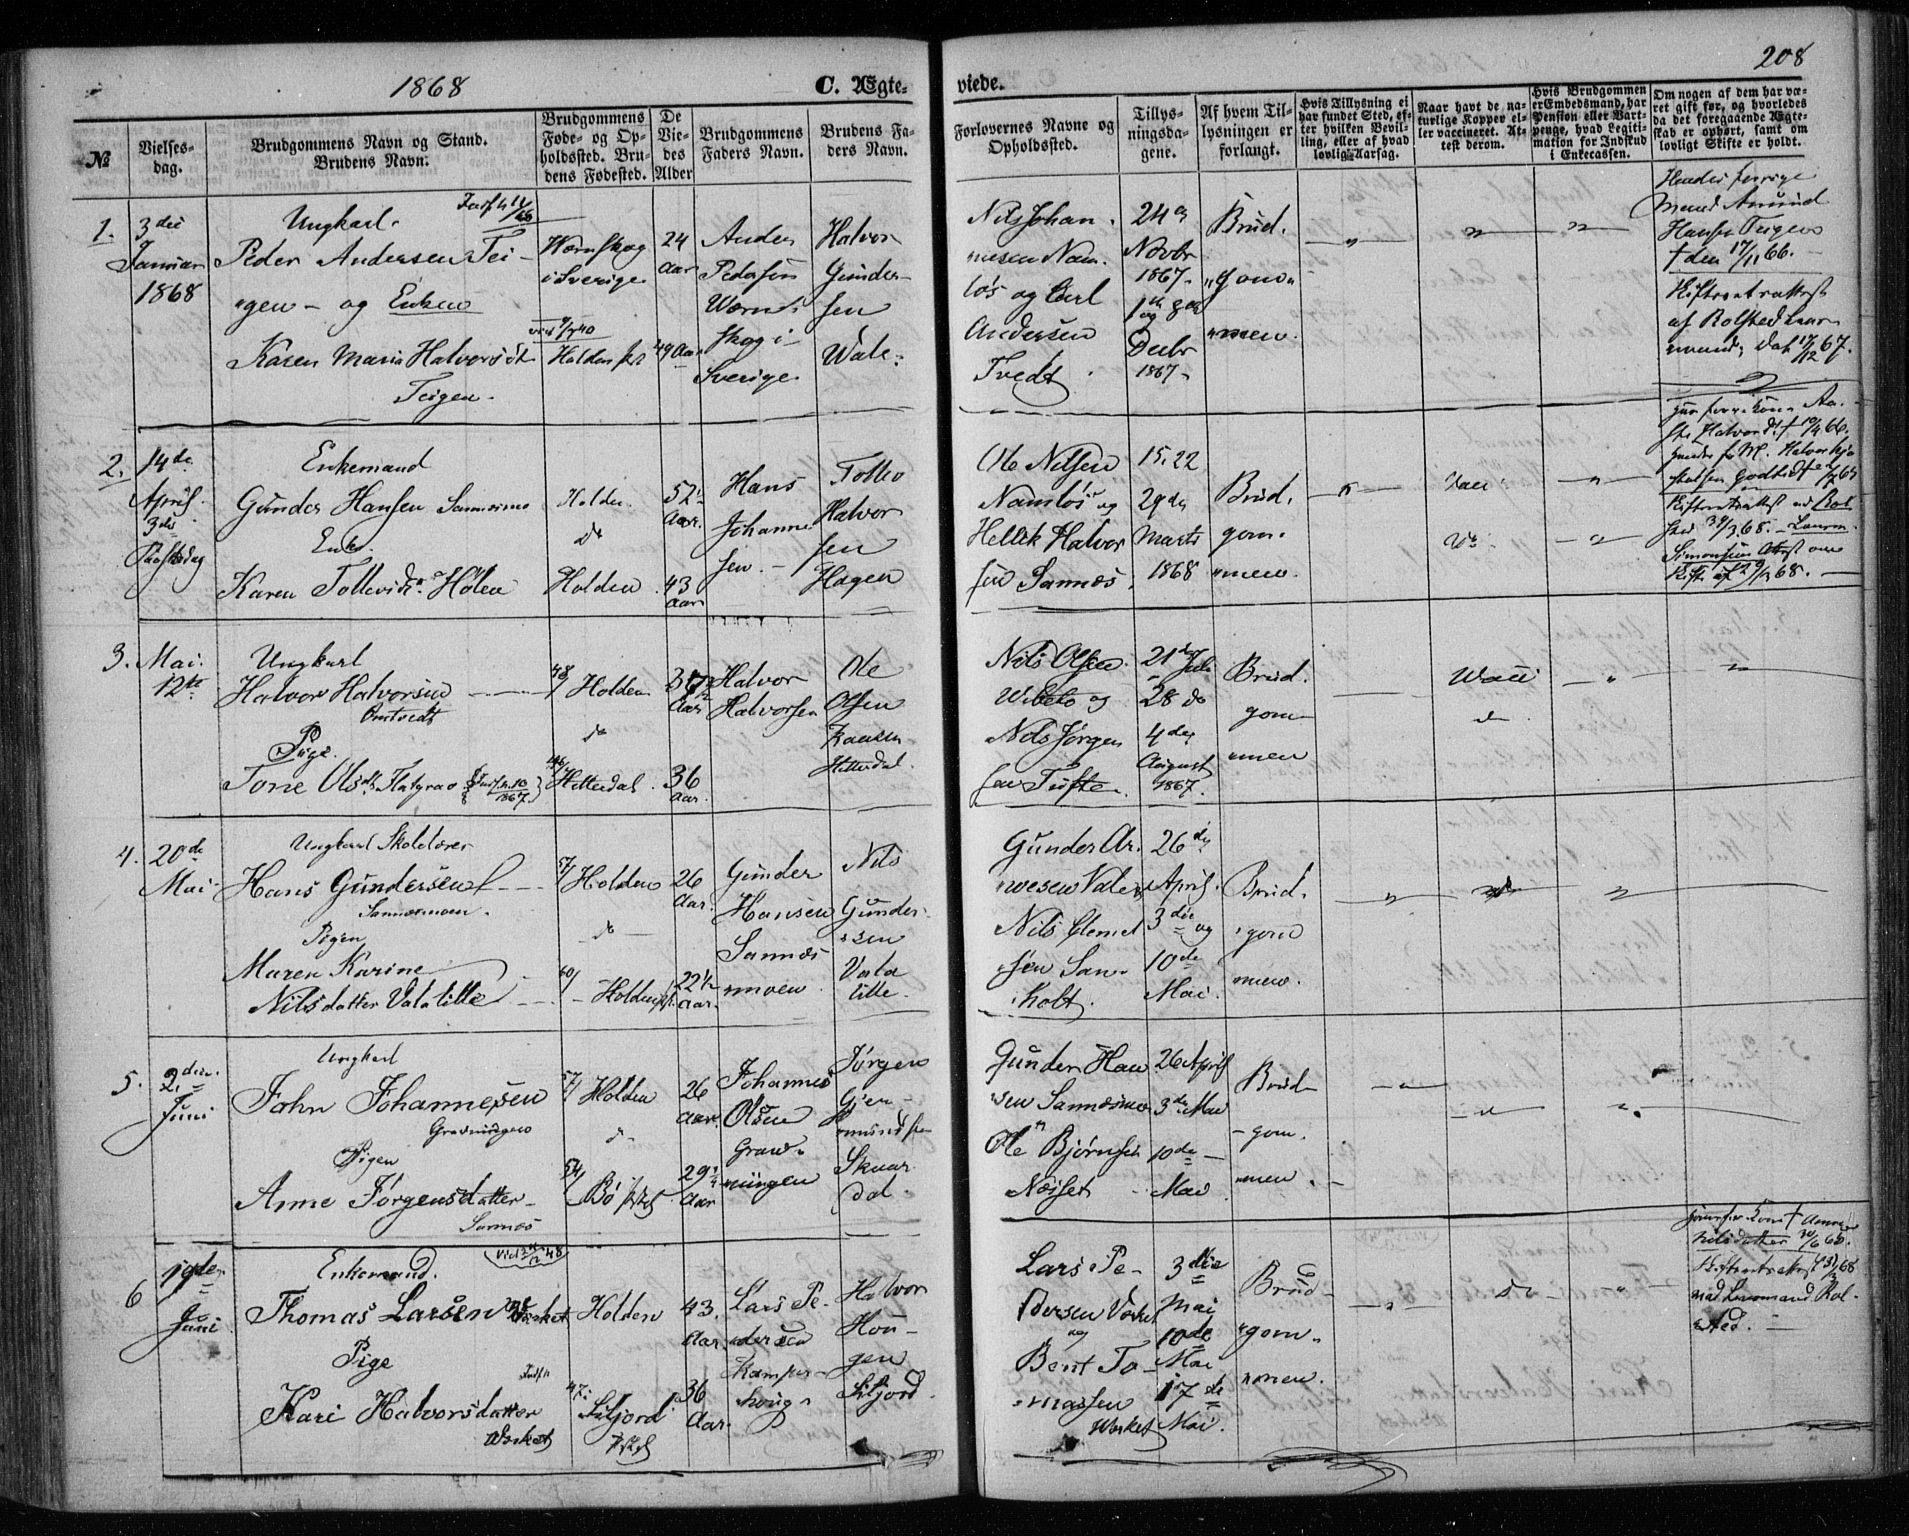 1868
C. Ægte-
viede.
208
№
Vielses-
dag.
Brudgommens Navn og Stand.
Brudens Navn.
Brudgommens
Føde- og Op-
holdssted. Bru-
dens Fødested.
De
Vie-
des
Alder
Brudgommens
Faders Navn.
Brudens Fa-
ders Navn.
Forlovernes Navne og
Opholdssted.
Tillys-
ningsda-
gene.
Af hvem Til-
lysningen er
forlangt.
Hvis Tillysning ei
har fundet Sted, ef-
ter hvilken Bevil-
ling, eller af hvad
lovlig Aarsag.
Naar havt de na-
turlige Kopper el-
ler vaccineret. At-
test derom.
Hvis Brudgommen
er Embedsmand, har
Pension eller Vart-
penge, hvad Legiti-
mation for Indskud
i Enkecassen.
Om nogen af dem har væ-
ret gift før, og hvorledes
da det foregaaende Ægte-
skab er ophørt, samt om
lovligt Skifte er holdt.
1.
3die
Januar
1868
Ungkarl.
Peder Andersen Tei-
gen - og Enken
Karen Maria Halvorsdt
Teigen.
Wærnskog
i Sverige
Holden
24
Aar
49 Aar
Anders
Pedersen
Wærns
skog i
Sverige
Halvor
Gunder-
sen
Wale
Nils Johan-
nesen Nam-
løs og Carl
Andersen
Tvedt
24de
Novbr
1867
1ste og 8de
Decbr
1867
Brud-
gom-
men.
Hendes forrige
Mand Amund
Hansen Teigen
† den 17/11 66.
Skifteretsattest
af Rolsted Lens-
mand, dat 17/12 67.
2.
14de
April
3die
Paaskedag
Enkemand
Gunder Hansen Sannesmo
Enke
Karen Tollevsd. Holen
Holden
do
Holden
52
Aar
43
Aar
Hans
Johanne
sen
Tollev
Halvor
sen
Hagen
Ole Nilsen
Namløs og
Hellek Halvor
sen Sannes
15. 22
29de
Marts
1868
Brud.
gom-
men.
Vacc.
do
3.
Mai
12te
Ungkarl
Halvor Halvorsen
Omtvedt
Pige
Tone Olsdt. Flatgrav
48/
Holden
do
46/
Hitterdal
36
Aar
Halvor
Halvorsen
Ole
Olsen
Kaasen
Hitterdal
Nils Olsen
og
Nils Jørgen
sen Tufte
21de Juli
28 do
4de
August
1867.
Brud.
gom
men
Vacc
do
4.
20de
Mai
Ungkarl Skolelærer
Hans Gundersen
Sannesmoen.
Pigen
Maren Karine
Nilsdatter Valalille
57/
Holden
do
60/
Holden
26
Aar.
22½
Aar.
Gunder
Hansen
Sannes
moen
Nils
Gunder-
sen
Vala
lille.
Gunder Ar-
nesen Vale
Nils Clemet
sen San-
holt.
26de
April.
3die og
10de
Mai.
Brud.
gom
men.
do
5.
2den
Juni
Ungkarl
John Johannesen
Gravningen
Pigen
Anne Jørgensdatter
Sannes
57/
Holden
do
54/
Bø
26
Aar.
29
Aar
Johannes
Olsen
Grav-
ningen
Jørgen
Gjer-
mundse
Skaar
dal.
Gunder Han
sen Sannesmo
Ole Bjørnsen
Næset
26 April
3die Mai
10de
Mai
Brud
gom.
men.
do
6
19de
Juni
Enkemand.
Thomas Larsen Værket
Pige
Kari Halvorsdatter
Værket
Holden
47.
Siljord
43.
Aar.
36
Aar.
Lars Pe-
dersen
Kamper-
houg
Halvor
Hou-
gen
Siljord
Lars Pe-
dersen Værket
og
Bent To-
massen
Værket
3die
Mai
10de
Mai
17de
Mai.
Brud
gom-
men.
do